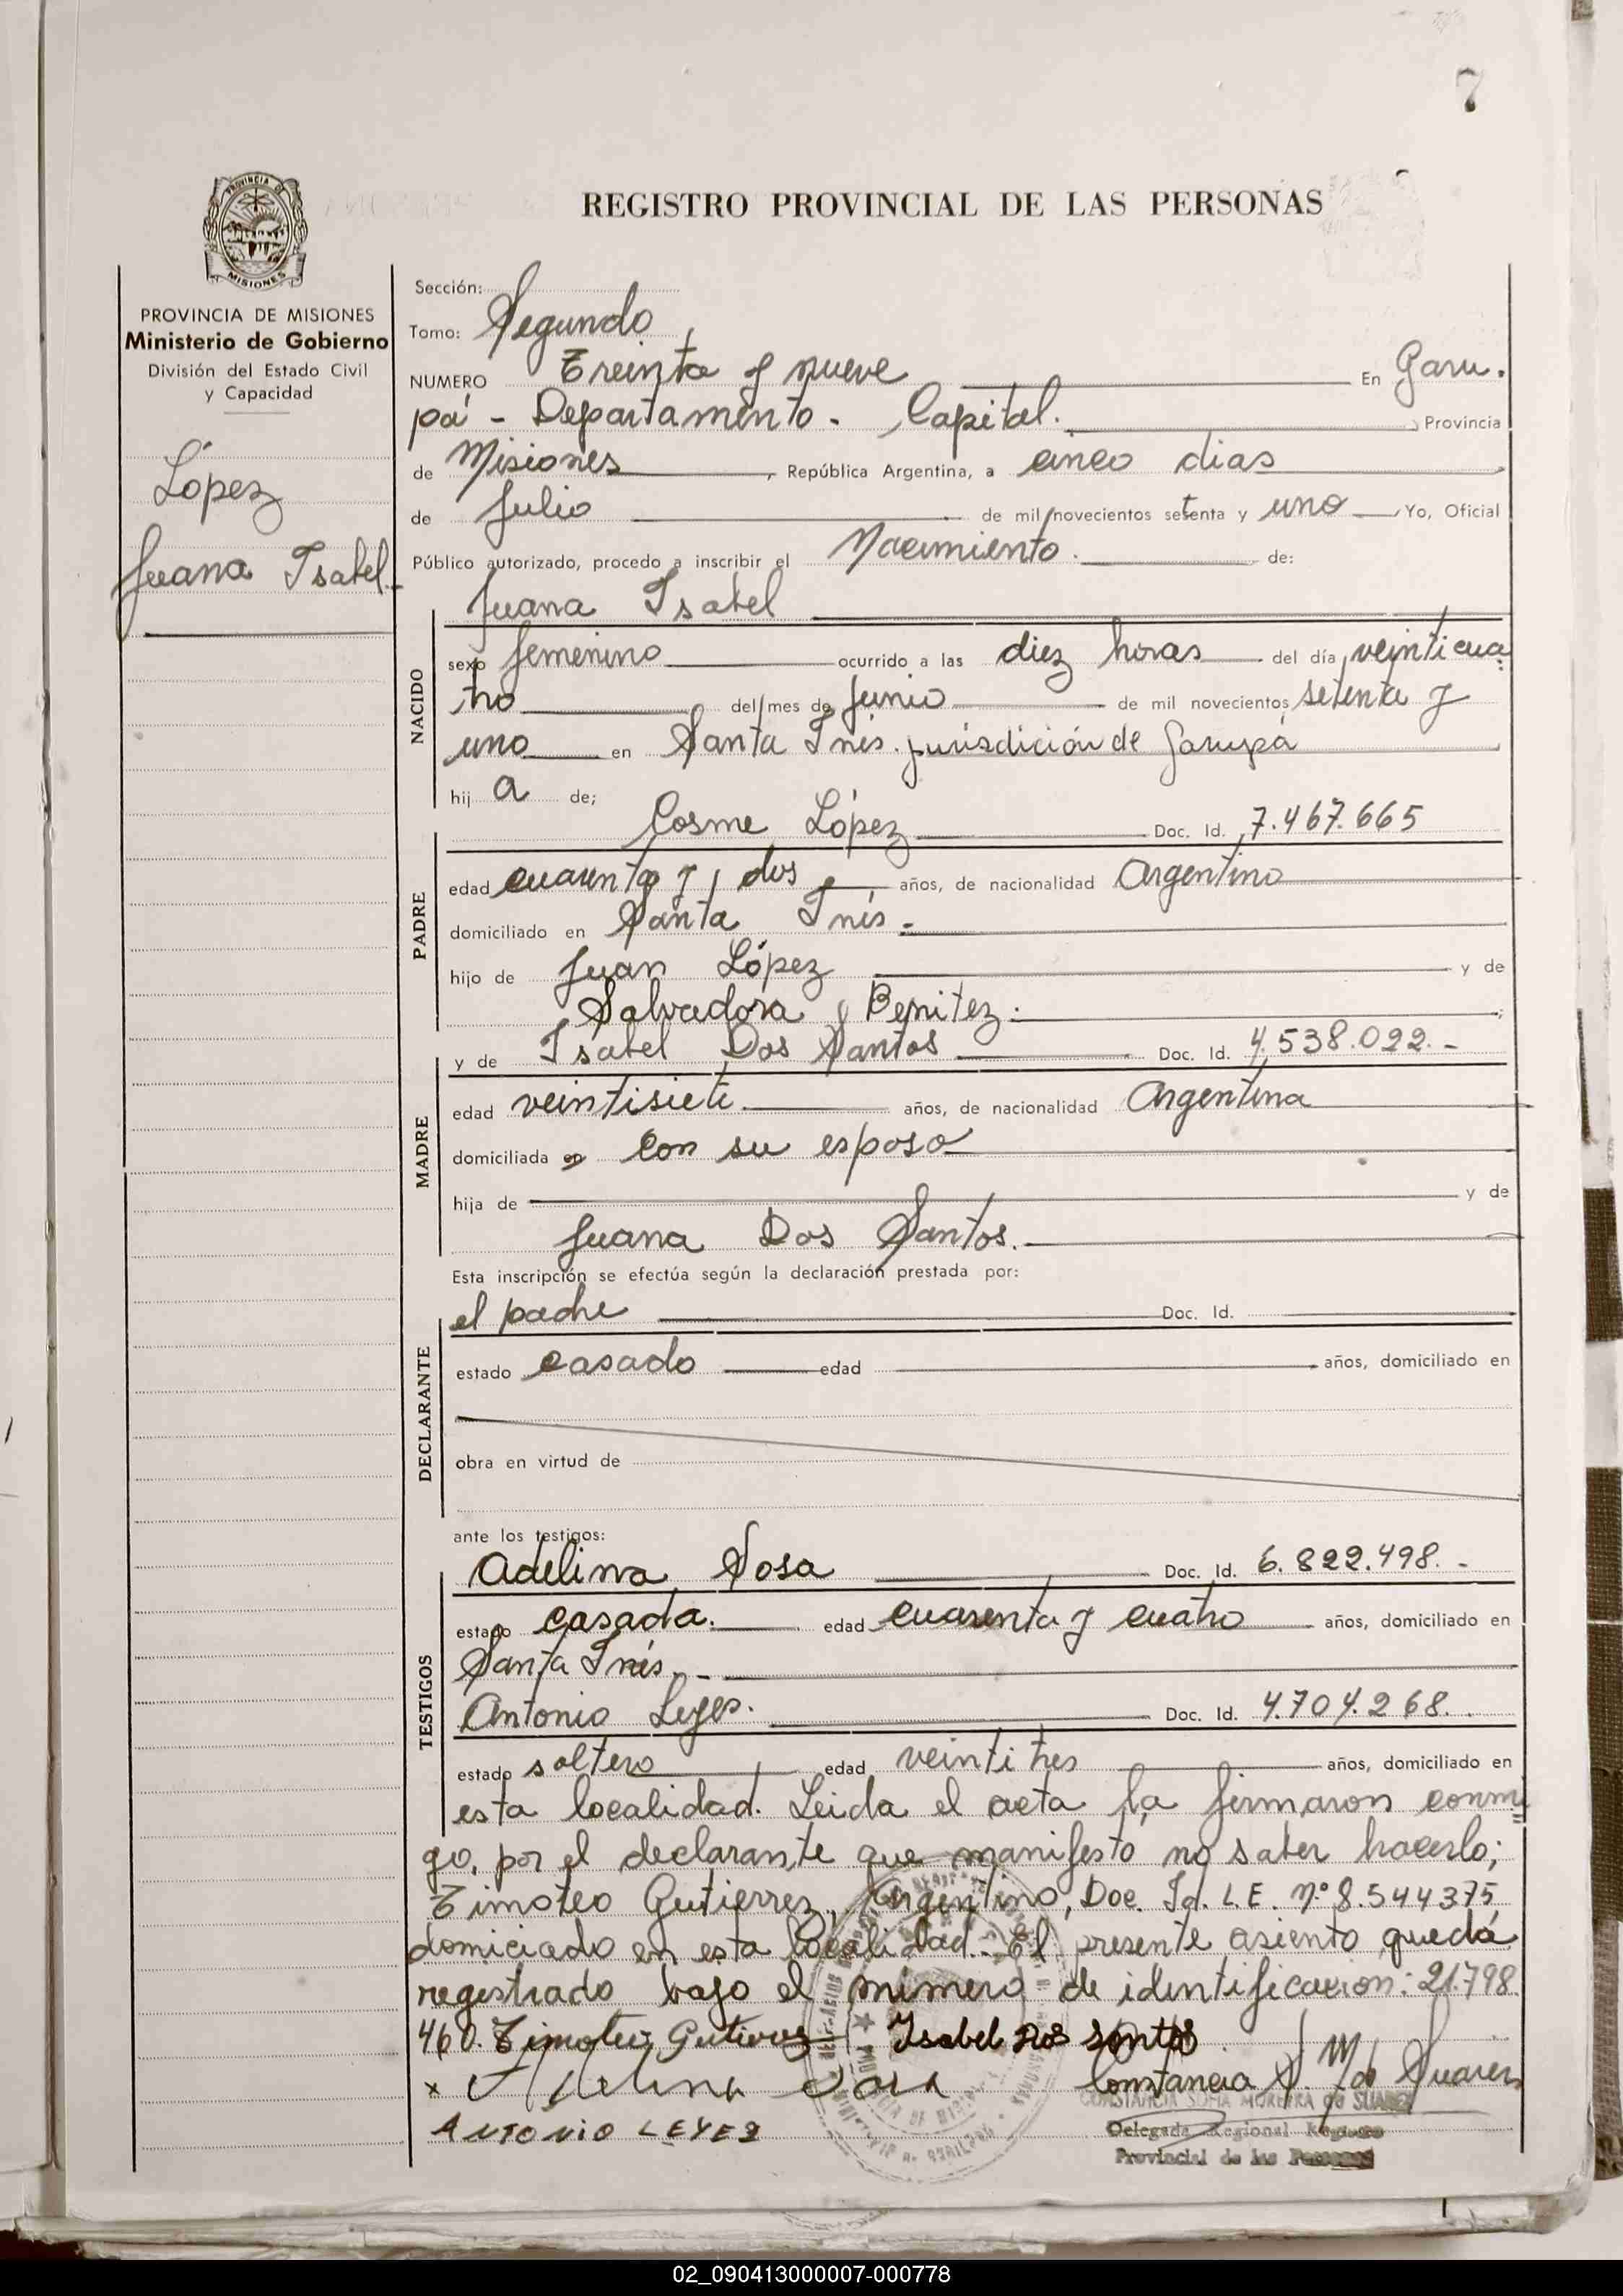 7
REGISTRO PROVINCIAL DE LAS PERSONAS
PROVINCIA DE
MISIONES
PROVINCIA DE MISIONES
Ministerio de Gobierno
División del Estado Civil
y Capacidad
López
Juana Isabel.
Sección:
Tomo: Segundo
NUMERO Treinta y nueve En Garu.
pá - Departamento - Capital. , Provincia
de Misiones , República Argentina, a cinco dias
de Julio de mil novecientos setenta y uno Yo, Oficial
Público autorizado, procedo a inscribir el Nacimiento. de:
Juana Isabel
NACIDO
sexo femenino ocurrido a las diez horas del día veinticua
tro del mes de junio de mil novecientos setenta y
uno en Santa Inés. jurisdición de Garupá
hij a de;
Cosme López Doc. Id. 7.467.665
PADRE
edad cuarenta y dos años, de nacionalidad Argentino
domiciliado en Santa Inés.-
hijo de Juan López y de
Salvadora Benitez. ;
y de Isabel Dos Santos Doc. Id. 4.538.022.-
MADRE
edad veintisiete. años, de nacionalidad Argentina
domiciliada en con su esposo
hija de y de
Juana Dos Santos.
Esta inscripción se efectúa según la declaración prestada por:
el padre Doc. Id.
DECLARANTE
estado casado edad años, domiciliado en
obra en virtud de
ante los testigos:
Adelina Sosa Doc. Id. 6.822.498.-
TESTIGOS
estado casada. edad cuarenta y cuatro años, domiciliado en
Santa Inés.-
Antonio Leyes. Doc. Id. 4.704.268.
estado soltero edad veinti tres años, domiciliado en
esta localidad. Leida el acta la firmaron conmi
go, por el declarante que manifesto no saber hacerlo;
Timoteo Gutierrez, Argentino, Doc. Id. L.E. Nº 8.544375
domiciado en esta localidad. El presente asiento queda
registrado bajo el número de identificacion: 21.798.
460. Timoteo Gutierrez Isabel Dos Santos
x Adelina Sosa Constancia S. M de Suarez
ANTONIO LEYES
CONSTANCIA SOFIA MOREIRA de SUAREZ
Delegada Regional Registro
Provincial de las Personas
02_090413000007-000778